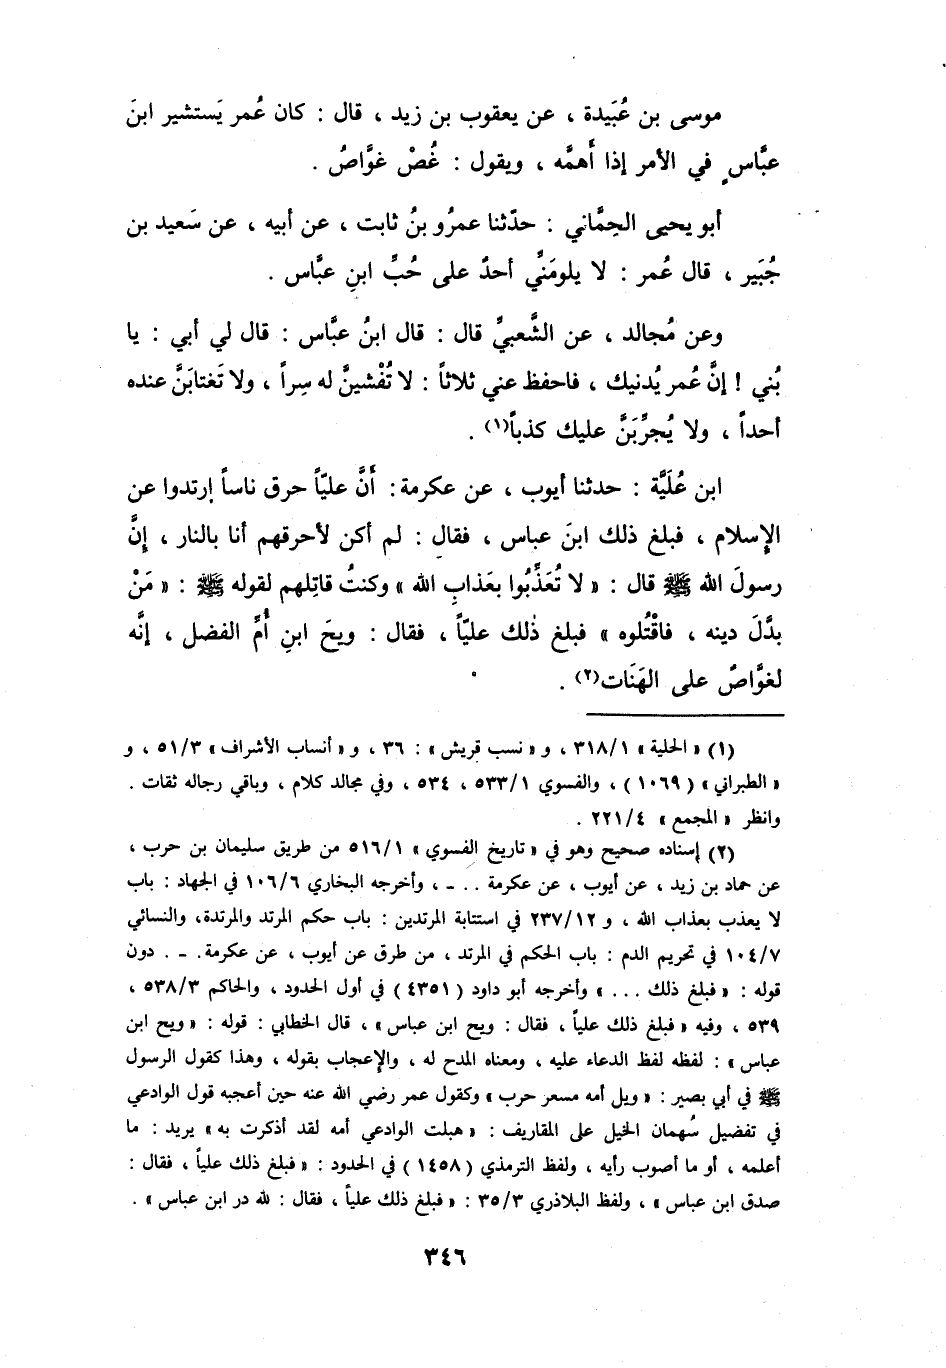 موسى بن عُبَيدة ، عن يعقوب بن زيد ، قال : كان عُمر يَستشير ابنَ
عبَّاسٍ في الأمر إذا أَهمَّه ، ويقول : غُصْ غوَّاصُ .
أبو يحيى الحِمَّاني : حدّثنا عمرُو بنُ ثابت ، عن أبيه ، عن سَعيد بن
جُبَير ، قال عُمر : لا يلومَنِّي أحدٌ على حُبِّ ابنِ عبَّاس .
وعن مُجالد ، عن الشَّعبيِّ قال : قال ابنُ عبَّاس : قال لي أبي : يا
بُني ! إنَّ عُمر يُدنيك ، فاحفظ عني ثلاثاً : لا تُفْشينَّ له سِراً ، ولا تَغتابَنَّ عنده
أحداً ، ولا يُجرِّبَنَّ عليك كذباً(١) .
ابن عُلَيَّة : حدثنا أيوب ، عن عكرمة : أَنَّ عليّاً حرق ناساً إرتدوا عن
الإِسلام ، فبلغ ذلك ابنَ عباس ، فقال : لم أكن لأحرقهم أنا بالنار ، إنَّ
رسولَ الله ﷺ قال : « لا تُعَذِّبُوا بعَذابِ الله » وكنتُ قاتِلهم لقوله ﷺ : « مَنْ
بدَّلَ دينه ، فاقْتُلوه » فبلغ ذٰلك عليّاً ، فقال : ويحَ ابنِ أُمِّ الفضل ، إنَّه
لغوَّاصٌ على الهَنَات(٢) .
(١) « الحلية » ٣١٨/١ ، و « نسب قريش » : ٣٦ ، و « أنساب الأشراف » ٥١/٣ ، و
« الطبراني » ( ١٠٦٩ ) ، والفسوي ٥٣٣/١ ، ٥٣٤ ، وفي مجالد كلام ، وباقي رجاله ثقات .
وانظر « المجمع » ٢٢١/٤ .
(٢) إسناده صحيح وهو في « تاريخ الفسوي » ٥١٦/١ من طريق سليمان بن حرب ،
عن حماد بن زيد ، عن أيوب ، عن عكرمة . . . ، وأخرجه البخاري ١٠٦/٦ في الجهاد : باب
لا يعذب بعذاب الله ، و ٢٣٧/١٢ في استتابة المرتدين : باب حكم المرتد والمرتدة، والنسائي
١٠٤/٧ في تحريم الدم : باب الحكم في المرتد ، من طرق عن أيوب ، عن عكرمة. . . دون
قوله : « فبلغ ذلك . . . » وأخرجه أبو داود ( ٤٣٥١ ) في أول الحدود ، والحاكم ٥٣٨/٣ ،
٥٣٩ ، وفيه « فبلغ ذلك علياً ، فقال : ويح ابن عباس » ، قال الخطابي : قوله : « ويح ابن
عباس » : لفظه لفظ الدعاء عليه ، ومعناه المدح له ، والإعجاب بقوله ، وهذا كقول الرسول
ﷺ في أبي بصير : « ويل أمه مسعر حرب » وكقول عمر رضي الله عنه حين أعجبه قول الوادعي
في تفضيل سُهمان الخيل على المقاريف : « هبلت الوادعي أمه لقد أذكرت به » يريد : ما
أعلمه ، أو ما أصوب رأيه ، ولفظ الترمذي ( ١٤٥٨ ) في الحدود : « فبلغ ذلك علياً ، فقال :
صدق ابن عباس » ، ولفظ البلاذري ٣٥/٣ : « فبلغ ذلك علياً ، فقال : لله در ابن عباس » .
٣٤٦